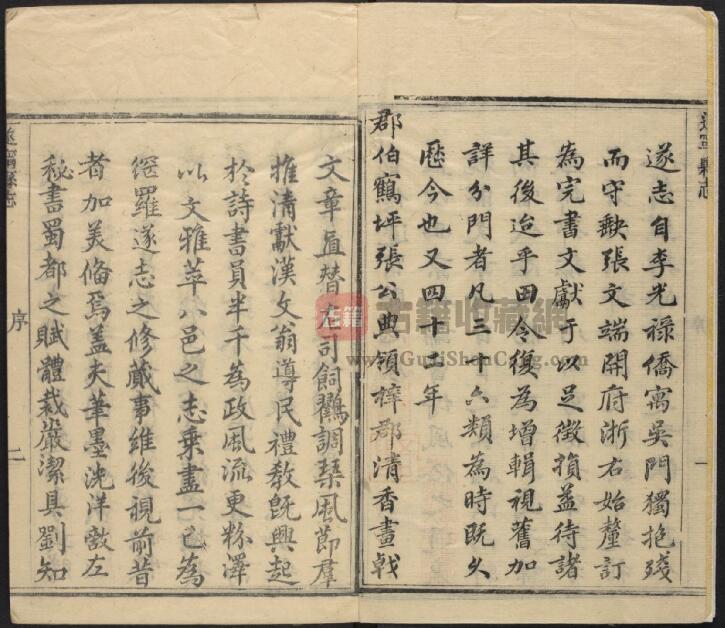 遂寧縣志
遂志自李光祿僑寓吳門獨抱殘
而守缺張文端開府浙右始釐訂
為完書文獻于以足徵損益待諸
其後迨乎田令復為增輯視舊加
詳分門者凡三十六類為時既久
歷今也又四十二年
郡伯鶴坪張公典領梓郡清香畫戟
一
文章直替左司飼鸛調琴風節羣
推清獻漢文翁導民禮教既興起
於詩書員半千為政風流更粉澤
以文雅萃八邑之志乘盡一己為
網羅遂志之修蕆事維後視前昔
者加美備焉蓋夫筆墨洸洋敵左
秘書蜀都之賦體裁嚴潔具劉知
遂寧縣志
序
二
古籍收藏網
www.GujiShouCang.com
古籍